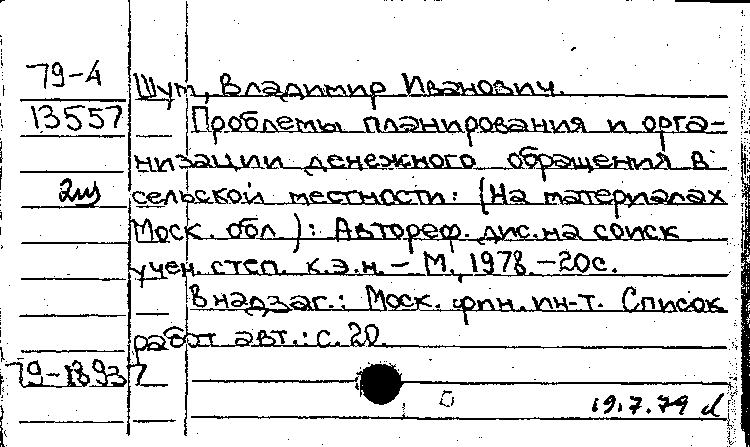 79-4
Шут, Владимир Иванович.
13557
Проблемы планирования и орга-
низации денежного обращения в
2 из
сельской местности: (На материалах
Моск. обл.): Автореф. дис. на соиск
учен. степ. к.э.н. – М., 1978. – 20с.
В надзаг.: Моск. фин. ин-т. Список
работ авт.: с. 20.
79-18937
19.7.79